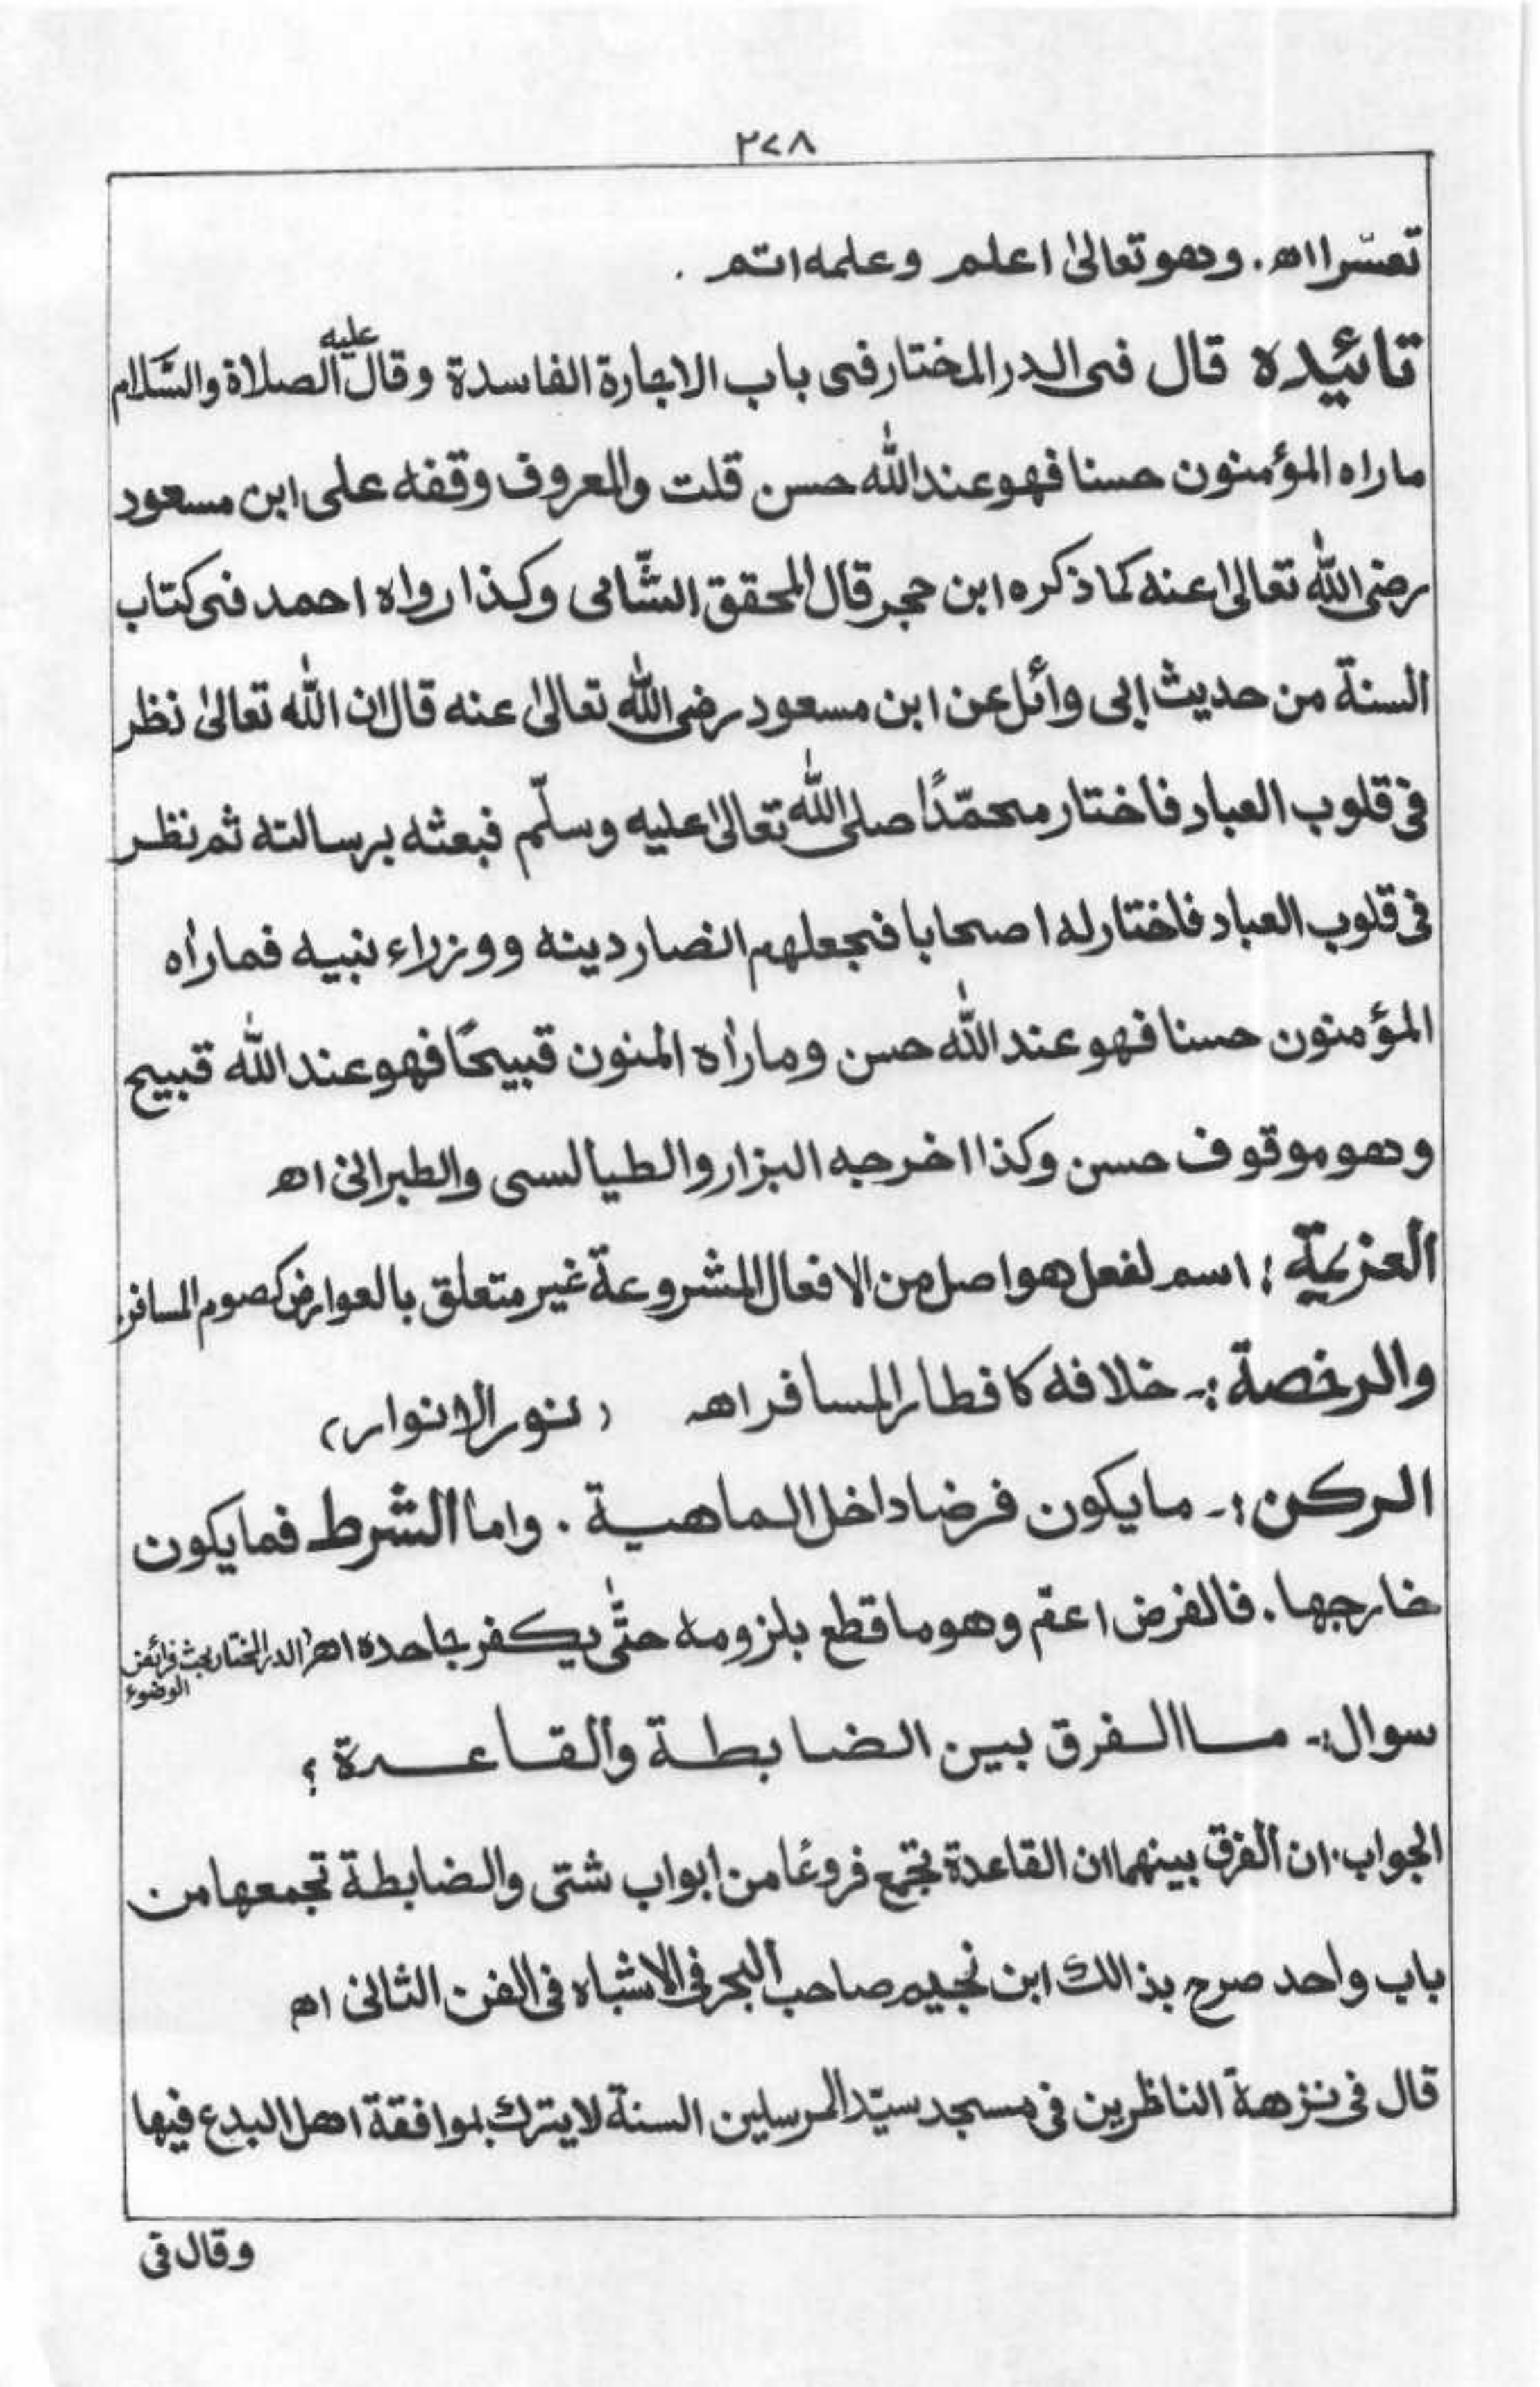 ٢٧٨
تعسّرا اھ . وهو تعالىٰ اعلم وعلمه اتم .
تائيده قال فى الدر المختار فى باب الاجارة الفاسدة وقال عليه الصلاة والسّلام
ماراه المؤمنون حسنا فهو عند الله حسن قلت والمعروف وقفه على ابن مسعود
رضى الله تعالىٰ عنه كما ذكره ابن حجر قال المحقق الشّامى وكذا رواه احمد فى كتاب
السنة من حديث ابى وائل عن ابن مسعود رضى الله تعالىٰ عنه قال ان الله تعالىٰ نظر
فى قلوب العباد فاختار محمّدًا صلى الله تعالىٰ عليه وسلّم فبعثه برسالته ثم نظر
فى قلوب العباد فاختار له اصحابا فجعلهم انصار دينه ووزراء نبيه فما رأه
المؤمنون حسنا فهو عند الله حسن وما رأه المنون قبيحًا فهو عند الله قبيح
وهو موقوف حسن وكذا اخرجه البزار والطيالسى والطبرانى اھ
العزيمة : اسم لفعل هو اصل من الافعال المشروعة غير متعلق بالعوارض كصوم المسافر
والرخصة :۔ خلافه كافطار المسافر اھ (نور الانوار)
الركن :۔ ما يكون فرضا داخل الماهية . واما الشرط فما يكون
خارجها . فالفرض اعم وهو ما قطع بلزومه حتّٰى يكفر جاحده اھ الدر المختار بحث فرائض الوضوء
سوال :۔ ما الفرق بين الضابطة والقاعدة ؟
الجواب : ان الفرق بينهما ان القاعدة تجمع فروعًا من ابواب شتى والضابطة تجمعها من
باب واحد صرح بذالك ابن نجيم صاحب البحر فى الاشباه فى الفن الثانى اھ
قال فى نزهة الناظرين فى مسجد سيّد المرسلين السنة لا يترك بموافقة اهل البدع فيها
وقال فى